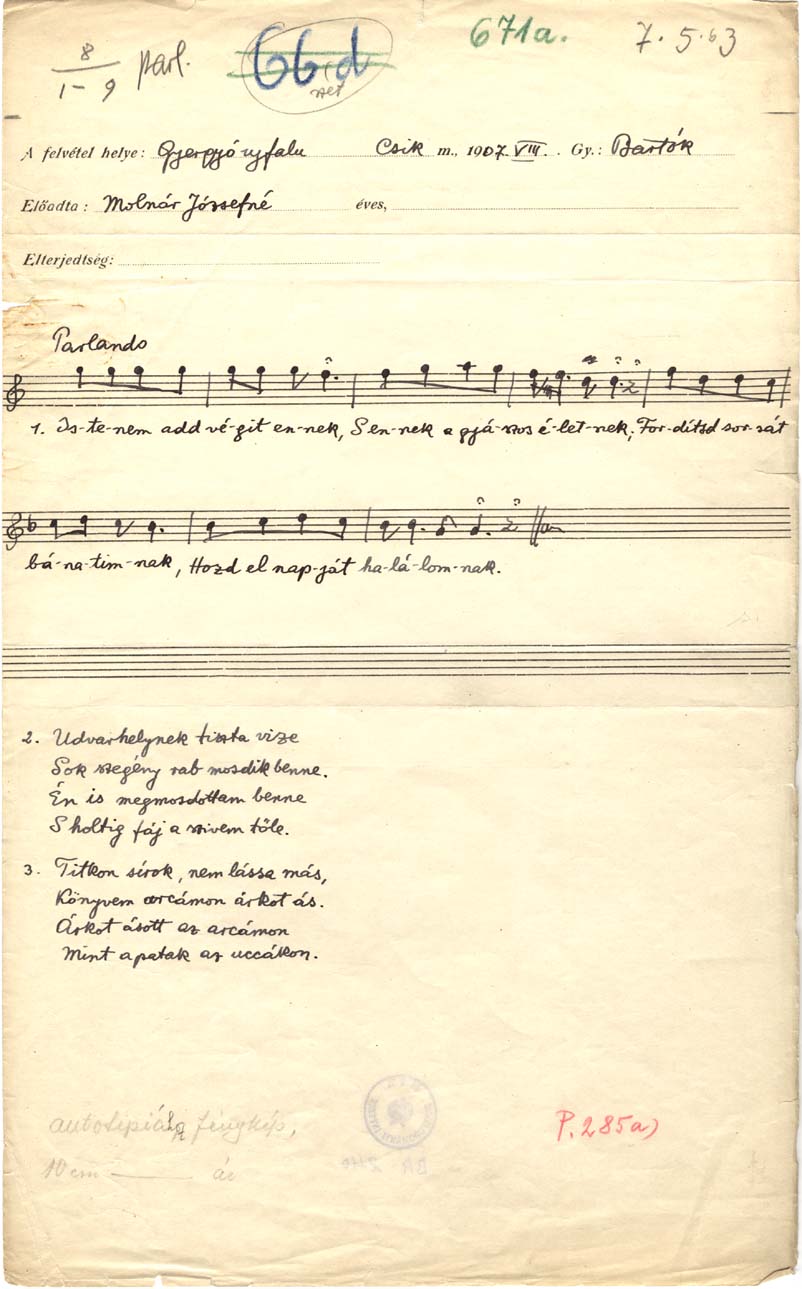 8
1-9 parl.
66d
671a.
7.5.63
A felvétel helye: Gyergyóujfalu Csik m., 1907. VIII. Gy.: Bartók
Előadta: Molnár Józsefné éves,
Elterjedtség:
Parlando
1. Is-te-nem add vé-git en-nek, S en-nek a gyá-szos é-let-nek, For-dítsd sor-sát
bá-na-tim-nak, Hozd el nap-ját ha-lá-lom-nak.
2. Udvarhelynek tiszta vize
Sok szegény rab mosdik benne.
Én is megmosdottam benne
S holtig fáj a szivem tőle.
3. Titkon sírok, nem lássa más,
Könyvem arcámon árkot ás.
Árkot ásott az arcámon
Mint a patak az uccákon.
fénykép,
10 cm
P. 285a)